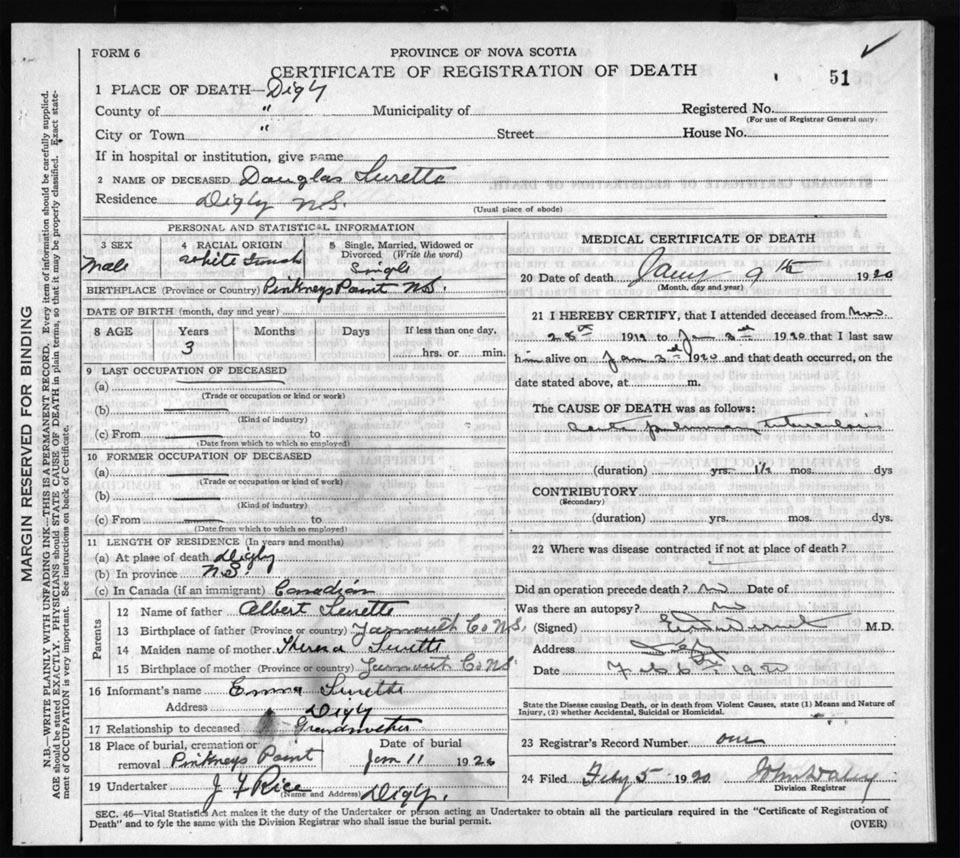 FORM 6
PROVINCE OF NOVA SCOTIA
CERTIFICATE OF REGISTRATION OF DEATH
51
1 PLACE OF DEATH—Digby
County of " Municipality of Registered No.
(For use of Registrar General only)
City or Town " Street House No.
If in hospital or institution, give name
2 NAME OF DECEASED Douglas Surette
Residence Digby N.S.
(Usual place of abode)
PERSONAL AND STATISTICAL INFORMATION
3 SEX Male
4 RACIAL ORIGIN White French
5 Single, Married, Widowed or Divorced (Write the word)
Single
BIRTHPLACE (Province or Country) Pinkneys Point N.S.
DATE OF BIRTH (month, day and year)
8 AGE Years Months Days If less than one day,
3 hrs. or min.
9 LAST OCCUPATION OF DECEASED
(a)
(Trade or occupation or kind or work)
(b)
(Kind of industry)
(c) From to
(Date from which to which so employed)
10 FORMER OCCUPATION OF DECEASED
(a)
(Trade or occupation or kind of work)
(b)
(Kind of industry)
(c) From to
(Date from which to which so employed)
11 LENGTH OF RESIDENCE (In years and months)
(a) At place of death Digby
(b) In province N.S.
(c) In Canada (if an immigrant) Canadian
Parents
12 Name of father Albert Surette
13 Birthplace of father (Province or country) Yarmouth Co N.S.
14 Maiden name of mother Theresa Surette
15 Birthplace of mother (Province or country) Yarmouth Co N.S.
16 Informant's name Emma Surette
Address Digby
17 Relationship to deceased Grandmother
18 Place of burial, cremation or removal Pinkneys Point
Date of burial
Jan 11 1920
19 Undertaker J F Rice Digby.
(Name and Address)
MEDICAL CERTIFICATE OF DEATH
20 Date of death Jany 9th 1920
(Month, day and year)
21 I HEREBY CERTIFY, that I attended deceased from Nov
28th 1919 to Jan 3rd 1920 that I last saw
him alive on Jan 3rd 1920 and that death occurred, on the
date stated above, at m.
The CAUSE OF DEATH was as follows:
Acute pulmonary tuberculosis
(duration) yrs. 1½ mos. dys
CONTRIBUTORY
(Secondary)
(duration) yrs. mos. dys.
22 Where was disease contracted if not at place of death?
Did an operation precede death? No Date of
Was there an autopsy? No
(Signed) M.D.
Address
Date Feb 6th 1920
State the Disease causing Death, or in death from Violent Causes, state (1) Means and Nature of
Injury, (2) whether Accidental, Suicidal or Homicidal.
23 Registrar's Record Number one
24 Filed Feby 5 1920 John Daley
Division Registrar
SEC. 46—Vital Statistics Act makes it the duty of the Undertaker or person acting as Undertaker to obtain all the particulars required in the "Certificate of Registration of
Death" and to fyle the same with the Division Registrar who shall issue the burial permit.
(OVER)
MARGIN RESERVED FOR BINDING
N.B.—WRITE PLAINLY WITH UNFADING INK—THIS IS A PERMANENT RECORD. Every item of information should be carefully supplied.
AGE should be stated EXACTLY. PHYSICIANS should STATE CAUSE OF DEATH in plain terms, so that it may be properly classified. Exact state-
ment of OCCUPATION is very important. See instructions on back of Certificate.